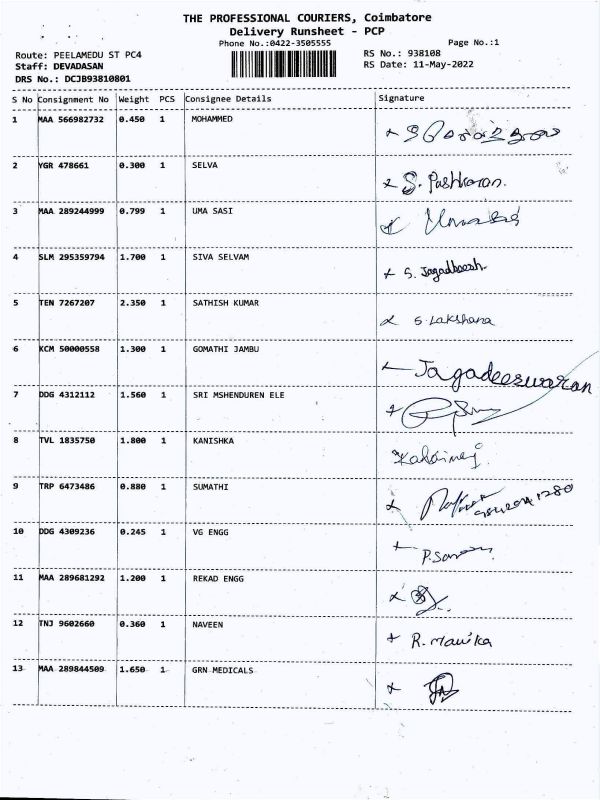 THE PROFESSIONAL COURIERS, Coimbatore
Delivery Runsheet - PCP
Phone No.:0422-3505555 Page No.:1
Route: PEELAMEDU ST PC4 RS No.: 938108
Staff: DEVADASAN RS Date: 11-May-2022
DRS No.: DCJB93810801
S No Consignment No Weight PCS Consignee Details Signature
1 MAA 566982732 0.450 1 MOHAMMED
2 YGR 478661 0.300 1 SELVA S. Pashkaran.
3 MAA 289244999 0.799 1 UMA SASI
4 SLM 295359794 1.700 1 SIVA SELVAM S. Jagadheesh
5 TEN 7267207 2.350 1 SATHISH KUMAR S. Lakshana
6 KCM 50000558 1.300 1 GOMATHI JAMBU Jagadeeswaran
7 DDG 4312112 1.560 1 SRI MSHENDUREN ELE
8 TVL 1835750 1.800 1 KANISHKA
9 TRP 6473486 0.880 1 SUMATHI
10 DDG 4309236 0.245 1 VG ENGG
11 MAA 289681292 1.200 1 REKAD ENGG
12 TNJ 9602660 0.360 1 NAVEEN R. Manika
13 MAA 289844509 1.650 1 GRN MEDICALS